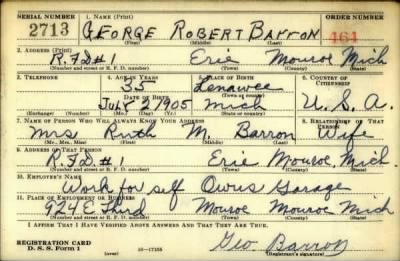 SERIAL NUMBER 1. NAME (Print) ORDER NUMBER
2713 GEORGE ROBERT BARRON 464
(First) (Middle) (Last)
2. ADDRESS (Print)
R.F.D #1 Erie Monroe Mich
(Number and street or R. F. D. number) (Town) (County) (State)
3. TELEPHONE 4. AGE IN YEARS 5. PLACE OF BIRTH 6. COUNTRY OF CITIZENSHIP
35 Lenawee
DATE OF BIRTH (Town or county)
July 2 1905 Mich U.S.A.
(Exchange) (Number) (Mo.) (Day) (Yr.) (State or country)
7. NAME OF PERSON WHO WILL ALWAYS KNOW YOUR ADDRESS 8. RELATIONSHIP OF THAT PERSON
Mrs Ruth M. Barron Wife
(Mr., Mrs., Miss) (First) (Middle) (Last)
9. ADDRESS OF THAT PERSON
R.F.D. #1 Erie Monroe, Mich.
(Number and street or R. F. D. number) (Town) (County) (State)
10. EMPLOYER'S NAME
Work for self Owns Garage
11. PLACE OF EMPLOYMENT OR BUSINESS
924 E Third Monroe Monroe Mich
(Number and street or R. F. D. number) (Town) (County) (State)
I AFFIRM THAT I HAVE VERIFIED ABOVE ANSWERS AND THAT THEY ARE TRUE.
REGISTRATION CARD
D. S. S. Form 1 (over) 16—17105 Geo Barron
(Registrant's signature)